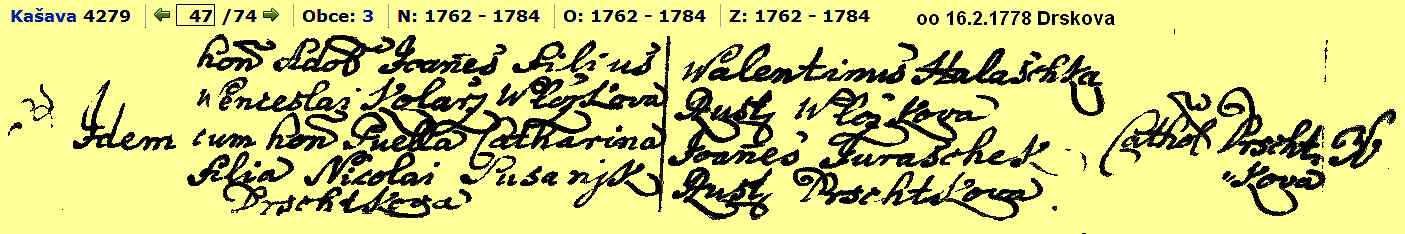 Kašava 4279 47 /74 Obce: 3 N: 1762 - 1784 O: 1762 - 1784 Z: 1762 - 1784 oo 16.2.1778 Drskova
hon Ado Joañes Filius
Wenceslai Kolarz Wlczkova
Idem cum hon Puella Catharina
Filia Nicolai Pusanjk
Drschtkova
Walentinus Halaschka
Rust Wlczkova
Joañes Juraschek
Rust Drschtkova .
Cathol Drscht
"kova